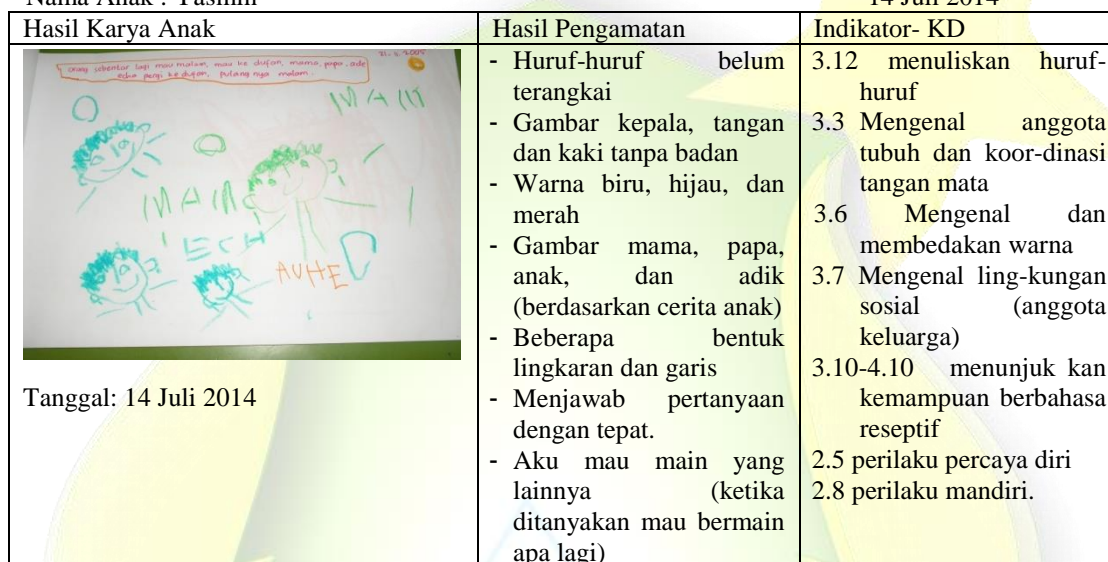 Nama Anak : Yasmin 14 Juli 2014
Hasil Karya Anak
orang sebentar lagi mau malam, mau ke dufan, mama, papa, ade
echa pergi ke dufan, pulang nya malam.
MAM
MAM
ECH
AUHE
Tanggal: 14 Juli 2014
Hasil Pengamatan
- Huruf-huruf belum
terangkai
- Gambar kepala, tangan
dan kaki tanpa badan
- Warna biru, hijau, dan
merah
- Gambar mama, papa,
anak, dan adik
(berdasarkan cerita anak)
- Beberapa bentuk
lingkaran dan garis
- Menjawab pertanyaan
dengan tepat.
- Aku mau main yang
lainnya (ketika
ditanyakan mau bermain
apa lagi)
Indikator- KD
3.12 menuliskan huruf-
huruf
3.3 Mengenal anggota
tubuh dan koor-dinasi
tangan mata
3.6 Mengenal dan
membedakan warna
3.7 Mengenal ling-kungan
sosial (anggota
keluarga)
3.10-4.10 menunjuk kan
kemampuan berbahasa
reseptif
2.5 perilaku percaya diri
2.8 perilaku mandiri.